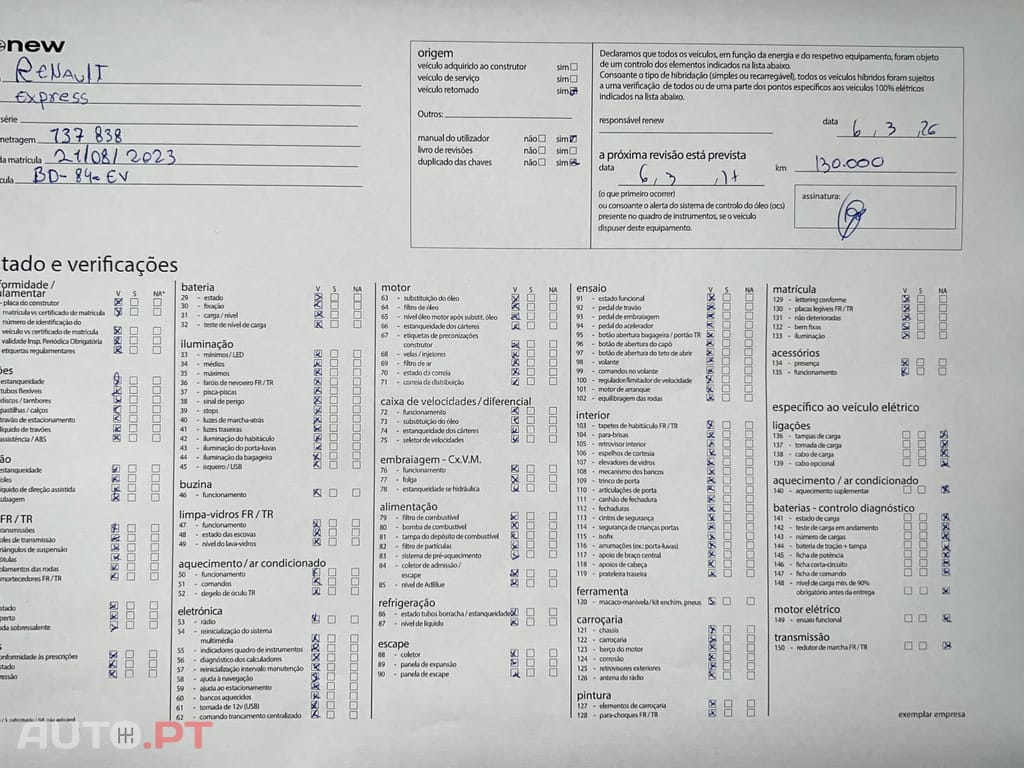 new
RENAULT
Express
série
metragem 137 838
da matrícula 21/08/2023
cula BD-84-EV
origem
veículo adquirido ao construtor sim
veículo de serviço sim
veículo retomado sim
Outros:
manual do utilizador não sim
livro de revisões não sim
duplicado das chaves não sim
Declaramos que todos os veículos, em função da energia e do respetivo equipamento, foram objeto
de um controlo dos elementos indicados na lista abaixo.
Consoante o tipo de hibridação (simples ou recarregável), todos os veículos híbridos foram sujeitos
a uma verificação de todos ou de uma parte dos pontos específicos aos veículos 100% elétricos
indicados na lista abaixo.
responsável renew data 6, 3, 26
a próxima revisão está prevista
data 6, 3, km 130.000
(o que primeiro ocorrer)
ou consoante o alerta do sistema de controlo do óleo (ocs)
presente no quadro de instrumentos, se o veículo
dispuser deste equipamento.
assinatura:
tado e verificações
formidade /
lamentar V S NA*
- placa do construtor
matrícula vs certificado de matrícula
número de identificação do
veículo vs certificado de matrícula
validade Insp. Periódica Obrigatória
etiquetas regulamentares
ões
estanqueidade
tubos flexíveis
discos / tambores
pastilhas / calços
travão de estacionamento
líquido de travões
assistência / ABS
ão
estanqueidade
foles
líquido de direção assistida
tubagem
FR / TR
transmissões
foles de transmissão
triângulos de suspensão
rótulas
rolamentos das rodas
amortecedores FR / TR
estado
aperto
roda sobresselente
conformidade às prescrições
estado
pressão
bateria V S NA
29 - estado
30 - fixação
31 - carga / nível
32 - teste de nível de carga
iluminação
33 - mínimos / LED
34 - médios
35 - máximos
36 - faróis de nevoeiro FR / TR
37 - pisca-piscas
38 - sinal de perigo
39 - stops
40 - luzes de marcha-atrás
41 - luzes traseiras
42 - iluminação do habitáculo
43 - iluminação do porta-luvas
44 - iluminação da bagageira
45 - isqueiro / USB
buzina
46 - funcionamento
limpa-vidros FR / TR
47 - funcionamento
48 - estado das escovas
49 - nível do lava-vidros
aquecimento / ar condicionado
50 - funcionamento
51 - comandos
52 - degelo do óculo TR
eletrónica
53 - rádio
54 - reinicialização do sistema
multimédia
55 - indicadores quadro de instrumentos
56 - diagnóstico dos calculadores
57 - reinicialização intervalo manutenção
58 - ajuda à navegação
59 - ajuda ao estacionamento
60 - bancos aquecidos
61 - tomada de 12v (USB)
62 - comando trancamento centralizado
motor V S NA
63 - substituição do óleo
64 - filtro de óleo
65 - nível óleo motor após substit. óleo
66 - estanqueidade dos cárteres
67 - etiquetas de preconizações
construtor
68 - velas / injetores
69 - filtro de ar
70 - estado da correia
71 - correia de distribuição
caixa de velocidades / diferencial
72 - funcionamento
73 - substituição do óleo
74 - estanqueidade dos cárteres
75 - seletor de velocidades
embraiagem - Cx.V.M.
76 - funcionamento
77 - folga
78 - estanqueidade se hidráulica
alimentação
79 - filtro de combustível
80 - bomba de combustível
81 - tampa do depósito de combustível
82 - filtro de partículas
83 - sistema de pré-aquecimento
84 - coletor de admissão /
escape
85 - nível de AdBlue
refrigeração
86 - estado tubos borracha / estanqueidade
87 - nível de líquido
escape
88 - coletor
89 - panela de expansão
90 - panela de escape
ensaio V S NA
91 - estado funcional
92 - pedal de travão
93 - pedal de embraiagem
94 - pedal do acelerador
95 - botão abertura bagageira / portão TR
96 - botão de abertura do capô
97 - botão de abertura do teto de abrir
98 - volante
99 - comandos no volante
100 - regulador/limitador de velocidade
101 - motor de arranque
102 - equilibragem das rodas
interior
103 - tapetes de habitáculo FR / TR
104 - para-brisas
105 - retrovisor interior
106 - espelhos de cortesia
107 - elevadores de vidros
108 - mecanismo dos bancos
109 - trinco de porta
110 - articulações de porta
111 - canhão de fechadura
112 - fechaduras
113 - cintos de segurança
114 - segurança de crianças portas
115 - isofix
116 - arrumações (ex.: porta-luvas)
117 - apoio de braço central
118 - apoios de cabeça
119 - prateleira traseira
ferramenta
120 - macaco-manivela / kit enchim. pneus
carroçaria
121 - chassis
122 - carroçaria
123 - berço do motor
124 - corrosão
125 - retrovisores exteriores
126 - antena do rádio
pintura
127 - elementos de carroçaria
128 - para-choques FR / TR
matrícula V S NA
129 - lettering conforme
130 - placas legíveis FR / TR
131 - não deterioradas
132 - bem fixas
133 - iluminação
acessórios
134 - presença
135 - funcionamento
específico ao veículo elétrico
ligações
136 - tampas de carga
137 - tomada de carga
138 - cabo de carga
139 - cabo opcional
aquecimento / ar condicionado
140 - aquecimento suplementar
baterias - controlo diagnóstico
141 - estado de carga
142 - teste de carga em andamento
143 - número de cargas
144 - bateria de tração + tampa
145 - ficha de potência
146 - ficha corta-circuito
147 - ficha de comando
148 - nível de carga mín. de 90%
obrigatório antes da entrega
motor elétrico
149 - ensaio funcional
transmissão
150 - redutor de marcha FR / TR
/ S: substituído / NA: não aplicável
exemplar empresa
AUTO.PT